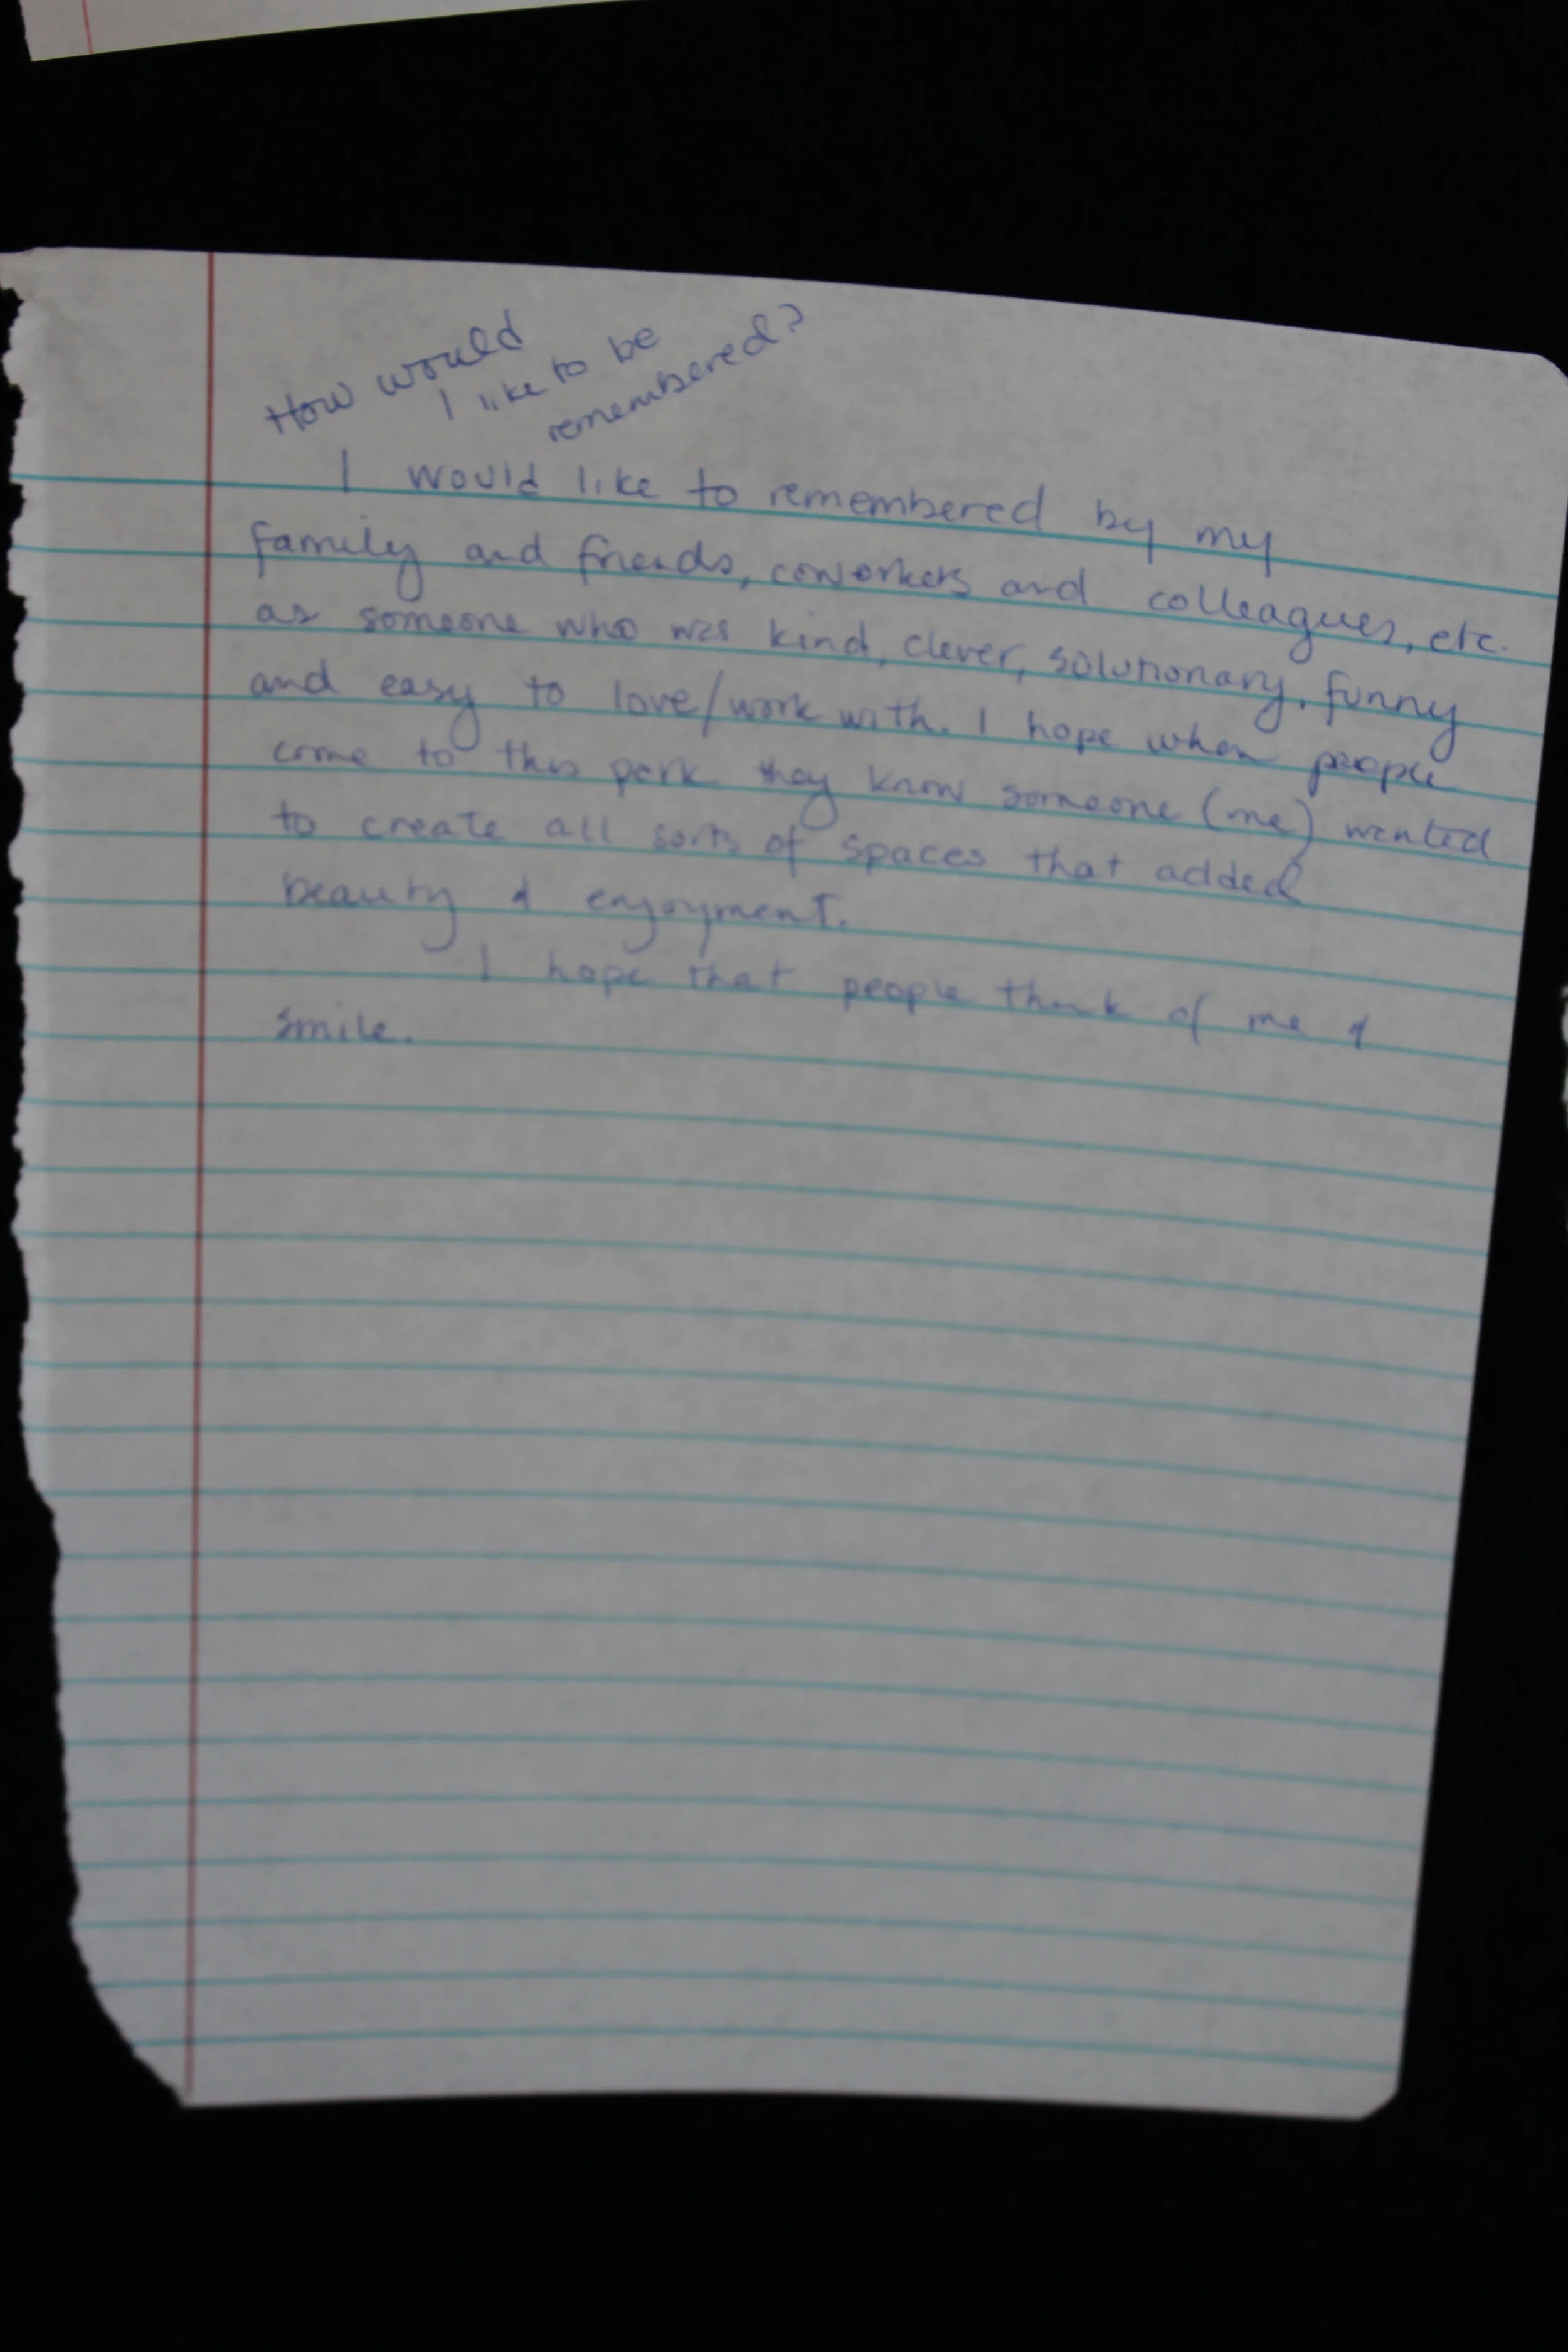 How would
I like to be
remembered?
I would like to remembered by my
family and friends, coworkers and colleagues, etc.
as someone who was kind, clever, solutionary, funny
and easy to love/work with. I hope when people
come to this park they know someone (me) wanted
to create all sorts of spaces that added
beauty & enjoyment.
I hope that people think of me &
smile.